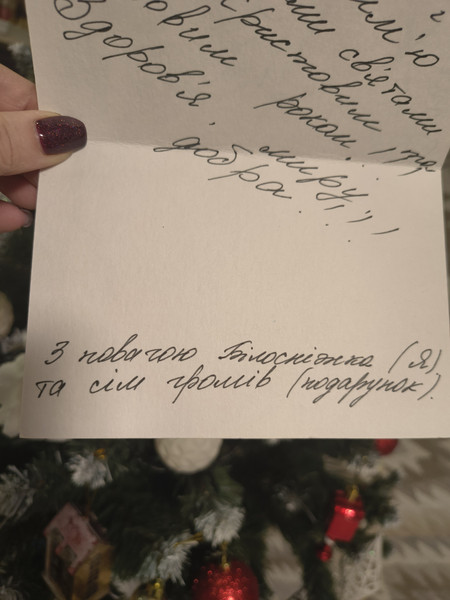 м'ю
ми святами
ристовим та
овим роком!
Здоров'я, миру!!!
добра...
З повагою Білосніжка (Я)
та сім гномів (подарунок).